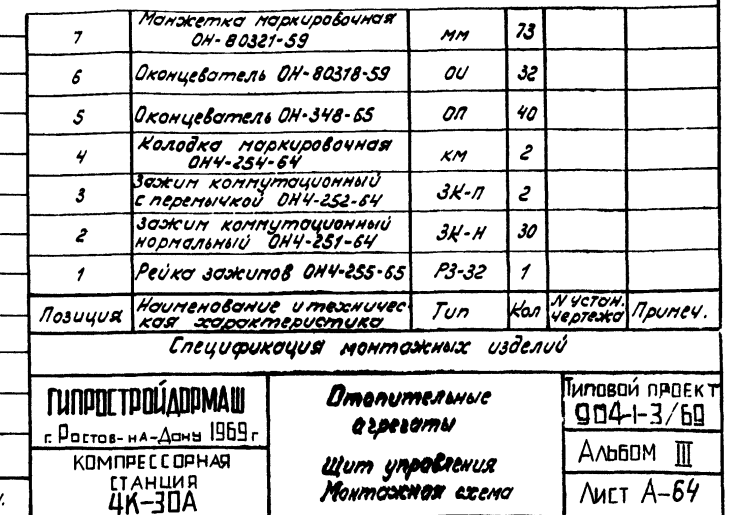 7 Манжетка маркировочная ОН-80321-59 мм 73
6 Оконцеватель ОН-80318-59 ОИ 32
5 Оконцеватель ОН-348-65 ОП 40
4 Колодка маркировочная ОН4-254-64 КМ 2
3 Зажим коммутационный с перемычкой ОН4-252-64 ЗК-П 2
2 Зажим коммутационный нормальный ОН4-251-64 ЗК-Н 30
1 Рейка зажимов ОН4-255-65 РЗ-32 1
Позиция Наименование и техничес-кая характеристика Тип Кол N устан. чертежа Примеч.
Спецификация монтажных изделий
ГИПРОСТРОЙДОРМАШ
г. Ростов-на-Дону 1969 г
КОМПРЕССОРНАЯ
СТАНЦИЯ
4К-30А
Отопительные
агрегаты
Щит управления
Монтажная схема
Типовой проект
904-1-3/69
Альбом III
Лист А-64